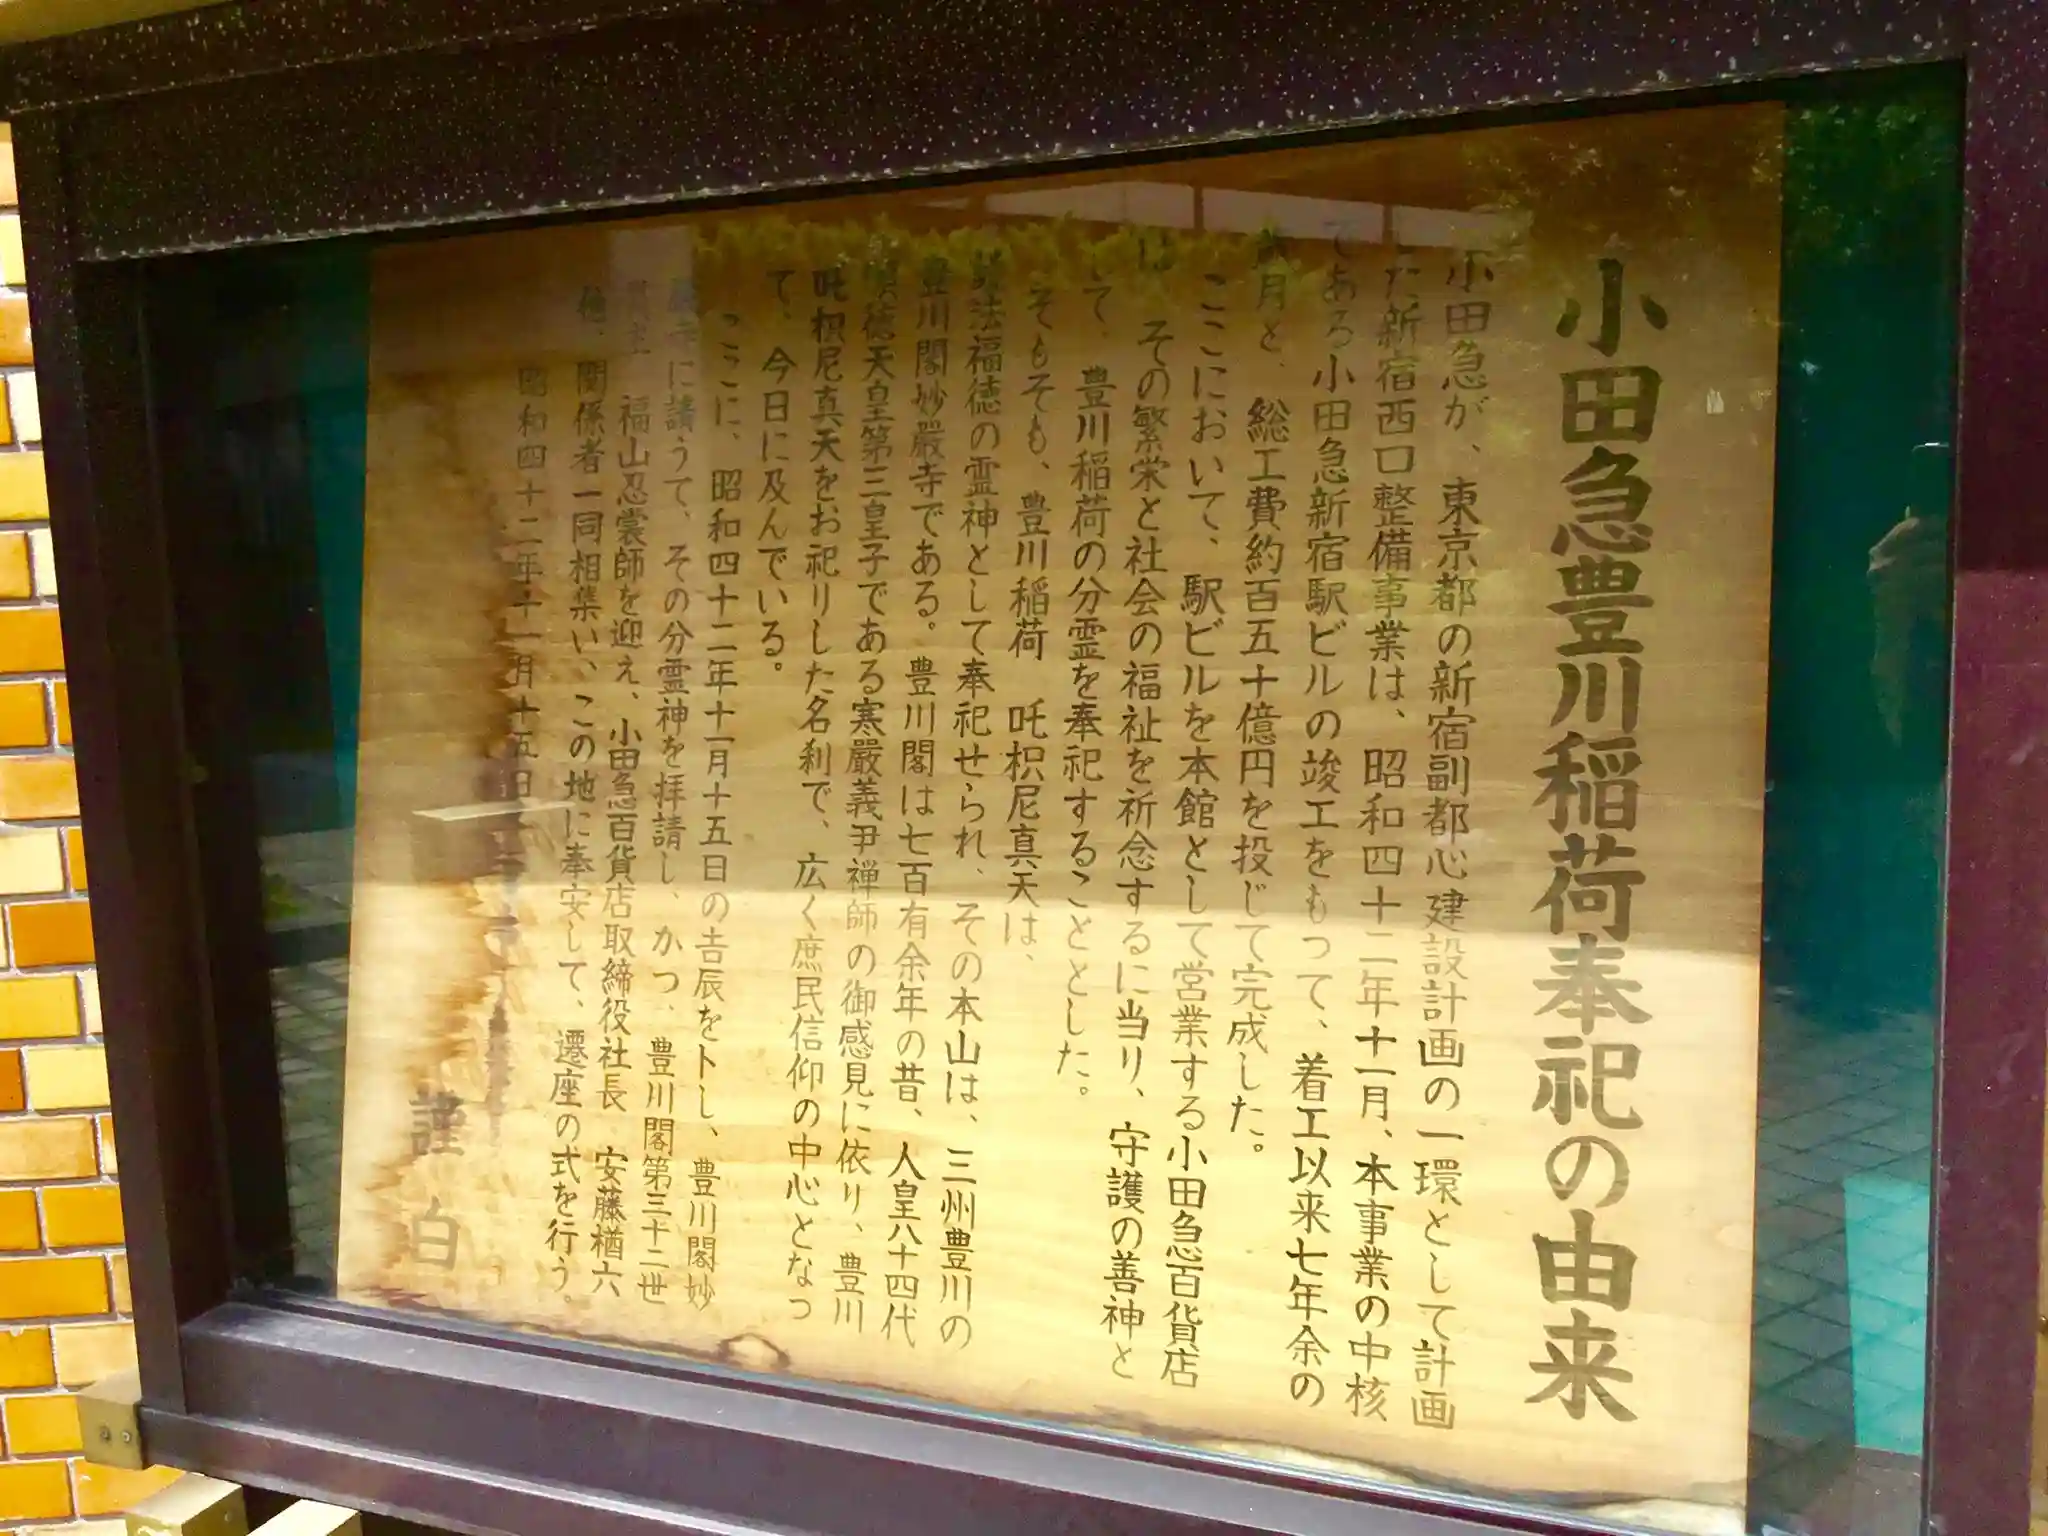 小田急豊川稲荷奉祀の由来
小田急が、東京都の新宿副都心建設計画の一環として計画
した新宿西口整備事業は、昭和四十二年十一月、本事業の中核
である小田急新宿駅ビルの竣工をもって、着工以来七年余の
歳月と、総工費約百五十億円を投じて完成した。
ここにおいて、駅ビルを本館として営業する小田急百貨店
は、その繁栄と社会の福祉を祈念するに当り、守護の善神と
して、豊川稲荷の分霊を奉祀することとした。
そもそも、豊川稲荷 吒枳尼真天は、
護法福徳の霊神として奉祀せられ、その本山は、三州豊川の
豊川閣妙嚴寺である。豊川閣は七百有余年の昔、人皇八十四代
順徳天皇第三皇子である寒嚴義尹禅師の御感見に依り、豊川
吒枳尼真天をお祀りした名刹で、広く庶民信仰の中心となっ
て、今日に及んでいる。
ここに、昭和四十二年十一月十五日の吉辰を卜し、豊川閣妙
嚴寺に請うて、その分霊神を拝請し、かつ、豊川閣第三十二世
福山忍裳師を迎え、小田急百貨店取締役社長 安藤楢六
他、関係者一同相集い、この地に奉安して、遷座の式を行う。
昭和四十二年十一月十五日
謹白